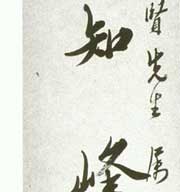 賢先生属
知峰